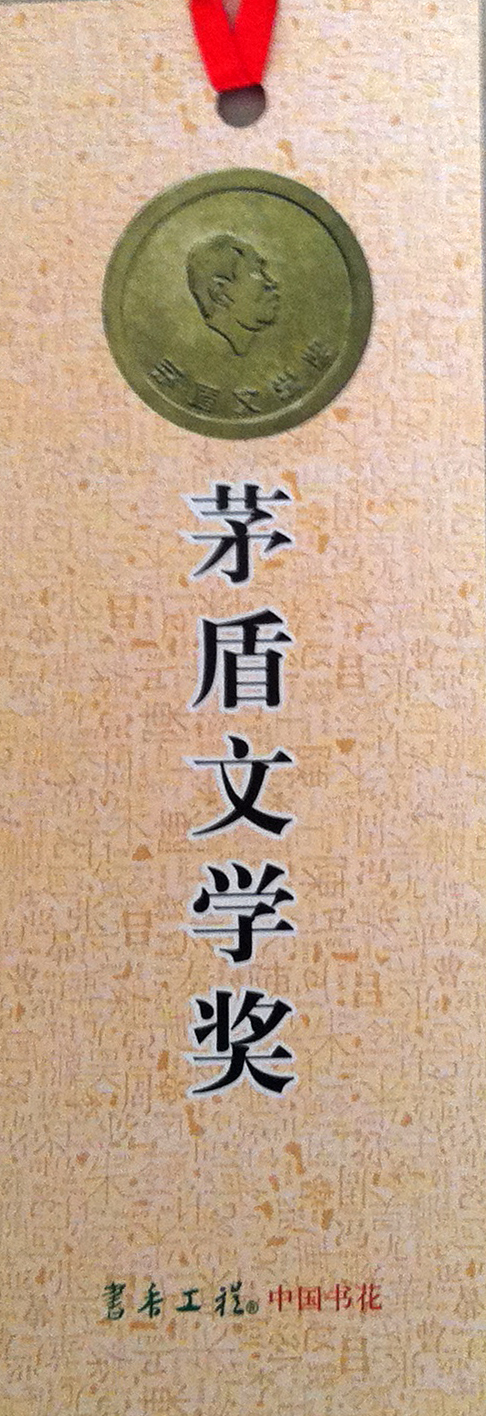 茅盾文学奖
茅盾文学奖
書香工程® 中国书花